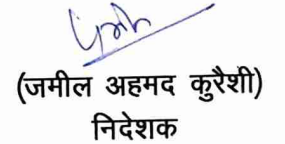 (जमील अहमद कुरैशी)
निदेशक